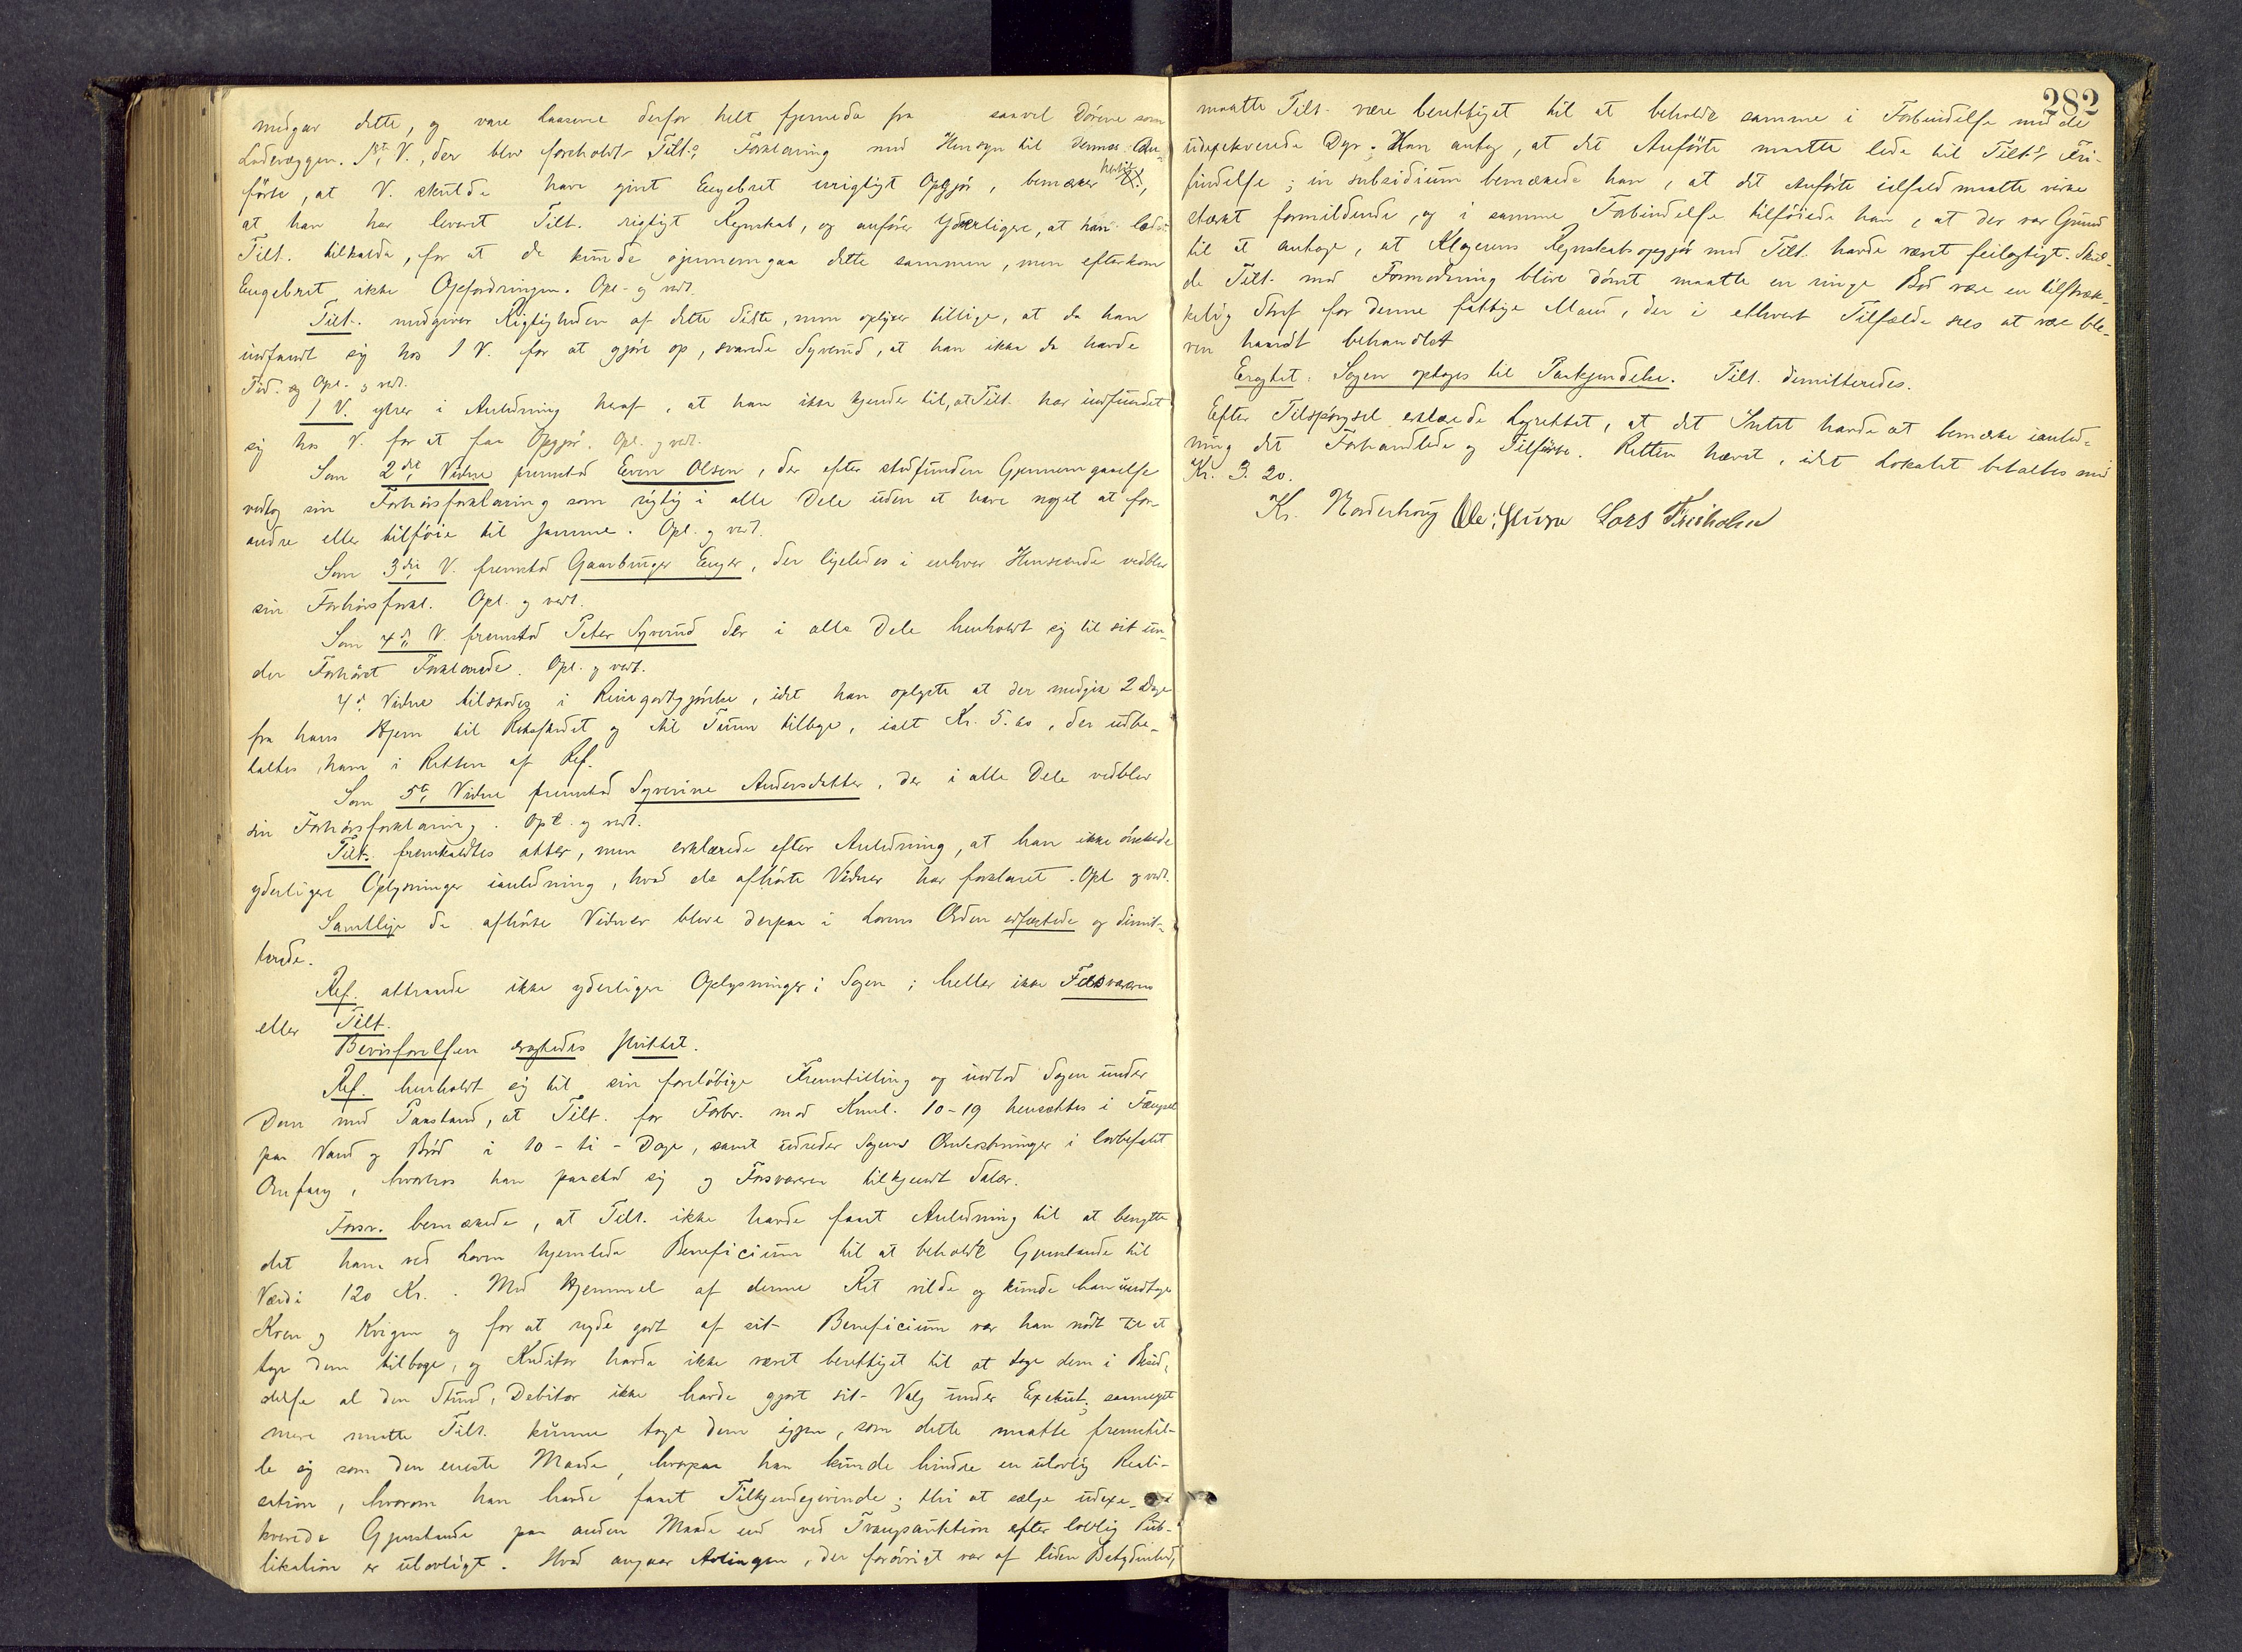 medgav dette, og vare Laasene derfor helt fjernede fra saavel Dörene som
Ladevæggen. 1ste V., der blev foreholdt Tilt.s Forklaring med Hensyn til dennes An-
förte, at V. skulde have givet Engebret urigtigt Opgjör, bemærker
at han har leveret Tilt. rigtigt Regnskab, og anförer yderligere, at han lod
Tilt. tilkalde, for at de kunde gjennemgaa dette sammen, men efterkom
Engebret ikke Opfordringen. Opl. og vedt.
Tilt. medgiver Rigtigheden af dette sidste, men oplyser tillige, at da han
indfandt sig hos 1 V. for at gjöre op, svarede Syverud, at han ikke da havde
Tid. og Opl. og vedt.
1 V. ytrer i Anledning heraf, at han ikke kjender til, at Tilt. har indfundet
sig hos V. for at faa Opgjör. Opl. og vedt.
Som 2det Vidne fremstod Even Olsen, der efter stedfunden Gjennemgaaelse
vedtog sin Forhörsforklaring som rigtig i alle Dele uden at have noget at for-
andre eller tilföie til samme. Opl. og vedt.
Som 3die V. fremstod Gaardbruger Enger, der ligeledes i enhver Henseende vedblev
sin Forhörsforkl. Opl. og vedt.
Som 4de V. fremstod Peter Syverud der i alle Dele henholdt sig til sit un-
der Forhöret Forklarede. Opl. og vedt.
4de Vidne tilstodes i Reisegodtgjörelse, idet han oplyste at der medgik 2 Dage
fra hans Hjem til Retsstedet og til Turen tilbage, ialt Kr. 5.60, der udbe-
taltes ham i Retten af Ref.
Som 5te Vidne fremstod Syverine Andersdatter, der i alle Dele vedblev
sin Forhörsforklaring. Opl. og vedt.
Tilt. fremkaldtes atter, men erklærede efter Anledning, at han ikke önskede
yderligere Oplysninger ianledning, hvad de afhörte Vidner har forklaret. Opl. og vedt.
Samtlige de afhörte Vidner bleve derpaa i Lovens Orden edfæstede og dimit-
terede.
Ref. attraaede ikke yderligere Oplysninger i Sagen; heller ikke Forsvareren
eller Tilt.
Bevisförelsen eragtedes sluttet.
Ref. henholdt sig til sin foreløbige Fremstilling og indlod Sagen under
Dom med Paastand, at Tilt. for Forbr. mod Kriml. 10-19 hensættes i Fængsel
paa Vand og Bröd i 10 - ti - Dage, samt udreder Sagens Omkostninger i lovbefalet
Omfang, hvorhos han paastod sig og Forsvareren tilkjendt Salær.
Forsv. bemærkede, at Tilt. ikke havde faaet Anledning til at benytte
det ham ved Loven hjemlede Beneficium til at beholde Gjenstande til
Værdi 120 Kr. Med Hjemmel af denne Ret vilde og kunde han undtage
Koen og Kvigen og for at nyde godt af sit Beneficium var han nödt til at
tage dem tilbage, og Kreditor havde ikke været berettiget til at tage dem i Besid-
delse al den Stund, Debitor ikke havde gjort sit Valg under Exekut.; saameget
mere maatte Tilt. kunne tage dem igjen, som dette maatte fremstil-
le sig som den eneste Maade, hvorpaa han kunde hindre en ulovlig Reali-
sation, hvorom han havde faaet Tilkjendegivende; thi at sælge udexe-
kverede Gjenstande paa anden Maade end ved Tvangsauktion efter lovlig Pub-
likation er ulovligt. Hvad angaar Avlingen, der forövrigt var af liden Betydenhed,
282
maatte Tilt. være berettiget til at beholde samme i Forbindelse med de
udexekverede Dyr. Han antog, at det Anförte maatte lede til Tilt.s Fri-
findelse; in subsidium bemærkede han, at det Anförte ialfald maatte virke
stærkt formildende, og i samme Forbindelse tilföiede han, at der var Grund
til at antage, at Klagerens Regnskabsopgjör med Tilt. havde været feilagtigt. Skul-
de Tilt. mod Formodning blive dömt maatte en ringe Bod være en tilstræk-
kelig Straf for denne fattige Mand, der i ethvert Tilfælde sees at være ble-
ven haardt behandlet
Eragtet: Sagen optages til Paakjendelse. Tilt. dimitteredes.
Efter Tilspörgsel erklærede Lagrettet, at det Intet havde at bemærke ianled-
ning det Forhandlede og Tilförte. Retten hævet, idet Lokalet betaltes med
Kr. 3.20.
Kr. Norderhoug Ole Lars